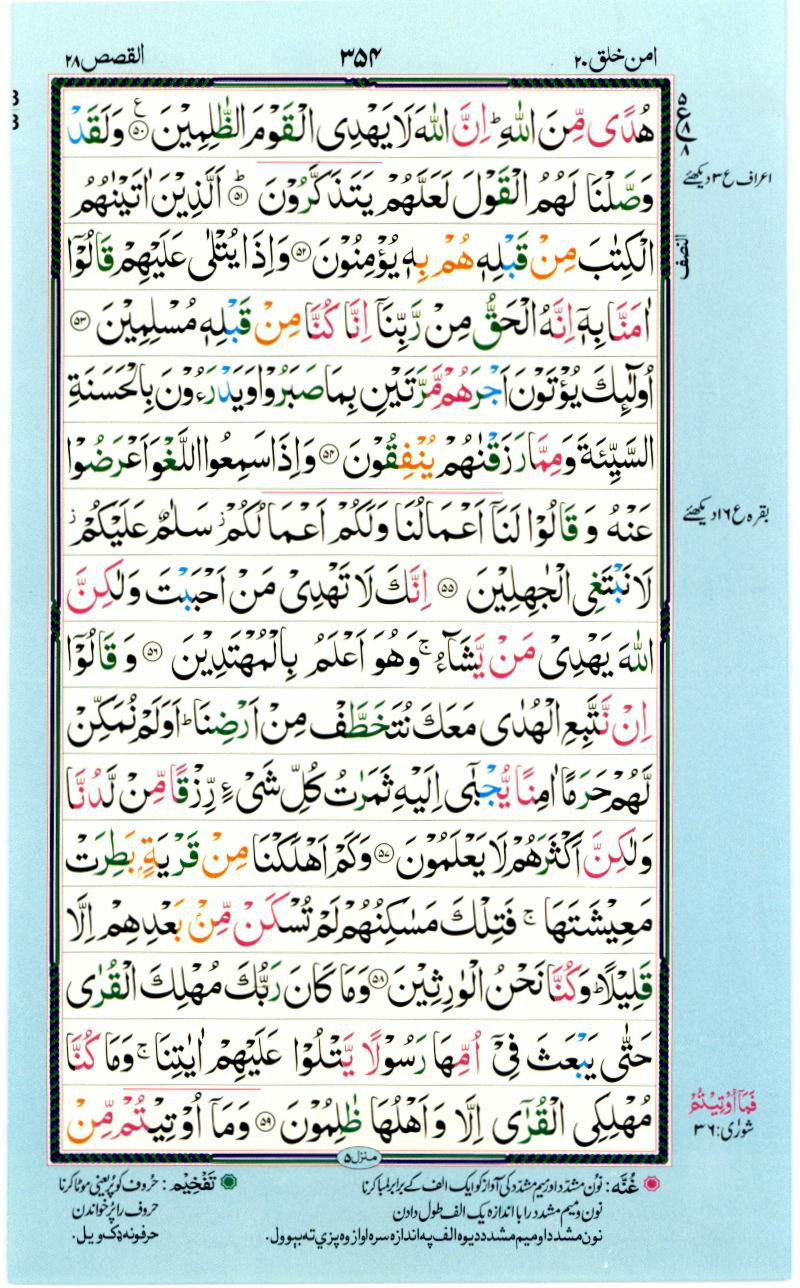 امن خلق ٢٠
٣٥٤
القصص ٢٨
هُدًى مِّنَ اللّٰهِ ؕ اِنَّ اللّٰهَ لَا يَهْدِى الْقَوْمَ الظّٰلِمِيْنَ ﴿٥٠﴾ وَلَقَدْ
وَصَّلْنَا لَهُمُ الْقَوْلَ لَعَلَّهُمْ يَتَذَكَّرُوْنَ ؕ ﴿٥١﴾ اَلَّذِيْنَ اٰتَيْنٰهُمُ
الْكِتٰبَ مِنْ قَبْلِهٖ هُمْ بِهٖ يُؤْمِنُوْنَ ﴿٥٢﴾ وَاِذَا يُتْلٰى عَلَيْهِمْ قَالُوْٓا
اٰمَنَّا بِهٖٓ اِنَّهُ الْحَقُّ مِنْ رَّبِّنَآ اِنَّا كُنَّا مِنْ قَبْلِهٖ مُسْلِمِيْنَ ﴿٥٣﴾
اُولٰٓئِكَ يُؤْتَوْنَ اَجْرَهُمْ مَّرَّتَيْنِ بِمَا صَبَرُوْا وَيَدْرَءُوْنَ بِالْحَسَنَةِ
السَّيِّئَةَ وَمِمَّا رَزَقْنٰهُمْ يُنْفِقُوْنَ ﴿٥٤﴾ وَاِذَا سَمِعُوا اللَّغْوَ اَعْرَضُوْا
عَنْهُ وَ قَالُوْا لَنَآ اَعْمَالُنَا وَلَكُمْ اَعْمَالُكُمْ ز سَلٰمٌ عَلَيْكُمْ ز
لَا نَبْتَغِى الْجٰهِلِيْنَ ﴿٥٥﴾ اِنَّكَ لَا تَهْدِىْ مَنْ اَحْبَبْتَ وَلٰكِنَّ
اللّٰهَ يَهْدِىْ مَنْ يَّشَآءُ ۚ وَهُوَ اَعْلَمُ بِالْمُهْتَدِيْنَ ﴿٥٦﴾ وَ قَالُوْٓا
اِنْ نَّتَّبِعِ الْهُدٰى مَعَكَ نُتَخَطَّفْ مِنْ اَرْضِنَا ؕ اَوَلَمْ نُمَكِّنْ
لَّهُمْ حَرَمًا اٰمِنًا يُّجْبٰٓى اِلَيْهِ ثَمَرٰتُ كُلِّ شَىْءٍ رِّزْقًا مِّنْ لَّدُنَّا
وَلٰكِنَّ اَكْثَرَهُمْ لَا يَعْلَمُوْنَ ﴿٥٧﴾ وَكَمْ اَهْلَكْنَا مِنْ قَرْيَةٍۢ بَطِرَتْ
مَعِيْشَتَهَا ۚ فَتِلْكَ مَسٰكِنُهُمْ لَمْ تُسْكَنْ مِّنْۢ بَعْدِهِمْ اِلَّا
قَلِيْلًا ؕ وَكُنَّا نَحْنُ الْوٰرِثِيْنَ ﴿٥٨﴾ وَمَا كَانَ رَبُّكَ مُهْلِكَ الْقُرٰى
حَتّٰى يَبْعَثَ فِىْٓ اُمِّهَا رَسُوْلًا يَّتْلُوْا عَلَيْهِمْ اٰيٰتِنَا ۚ وَمَا كُنَّا
مُهْلِكِى الْقُرٰٓى اِلَّا وَاَهْلُهَا ظٰلِمُوْنَ ﴿٥٩﴾ وَمَآ اُوْتِيْتُمْ مِّنْ
٥
ع
٨
٨
اعراف ع٣ دیکھئے
النصف
بقره ع١٦ دیکھئے
فَمَآ اُوْتِيْتُمْ
شورٰى: ٣٦
منزل ٥
غُنَّه: نون مشدّد اور میم مشدّد کی آواز کو ایک الف کے برابر لمبا کرنا
نون و میم مشدد را با اندازه یک الف طول دادن
نون مشدد او میم مشدد د یوه الف په اندازه سره اواز وه پزې ته بېوول.
تَفْخِيْم: حروف کو پُر یعنی موٹا کرنا
حروف را پر خواندن
حرفونه ډک ویل.